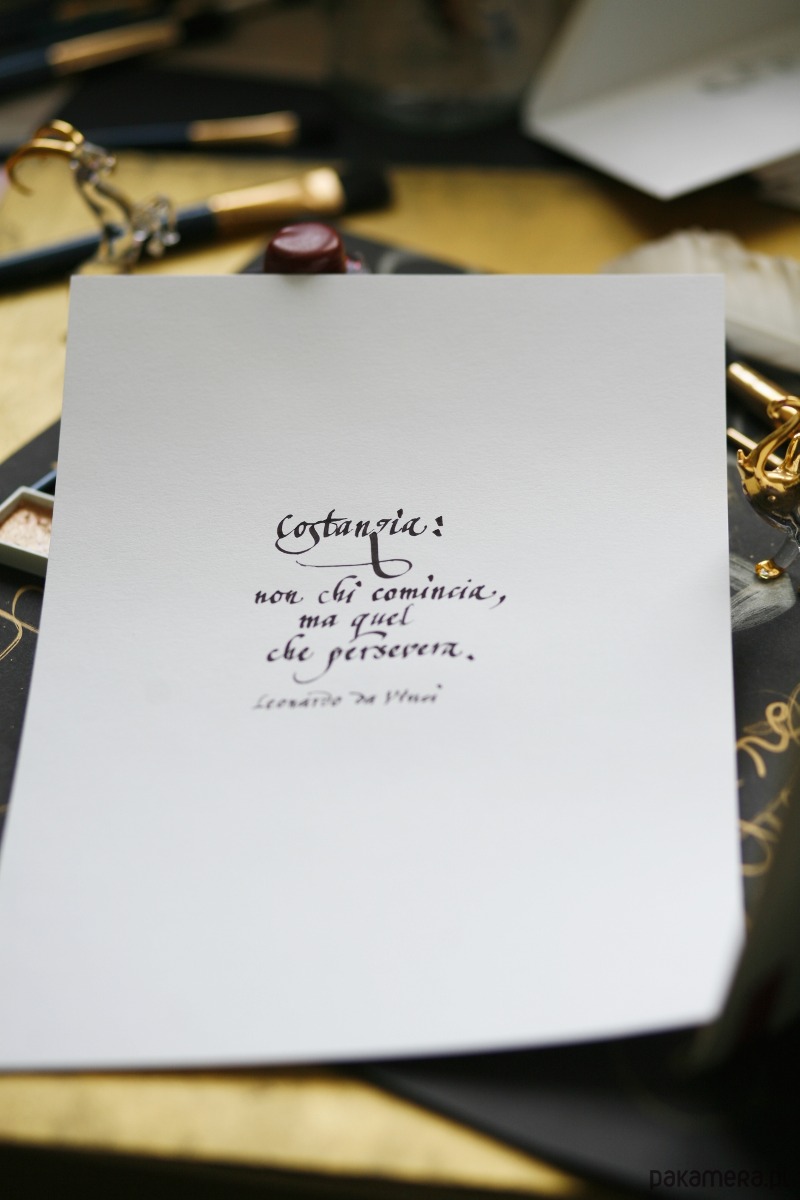 Costanzia:
non chi comincia,
ma quel
che persevera.
Leonardo da Vinci
pakamera.pl